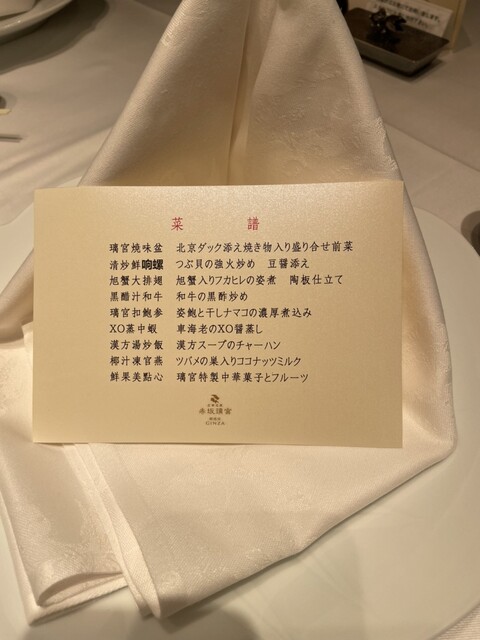 菜 譜
璃宮焼味盆 北京ダック添え焼き物入り盛り合せ前菜
清炒鮮响螺 つぶ貝の強火炒め 豆醤添え
旭蟹大排翅 旭蟹入りフカヒレの姿煮 陶板仕立て
黒醋汁和牛 和牛の黒酢炒め
璃宮扣鮑参 姿鮑と干しナマコの濃厚煮込み
XO蒸中蝦 車海老のXO醤蒸し
漢方湯炒飯 漢方スープのチャーハン
椰汁凍官燕 ツバメの巣入りココナッツミルク
鮮果美點心 璃宮特製中華菓子とフルーツ
赤坂璃宮
GINZA